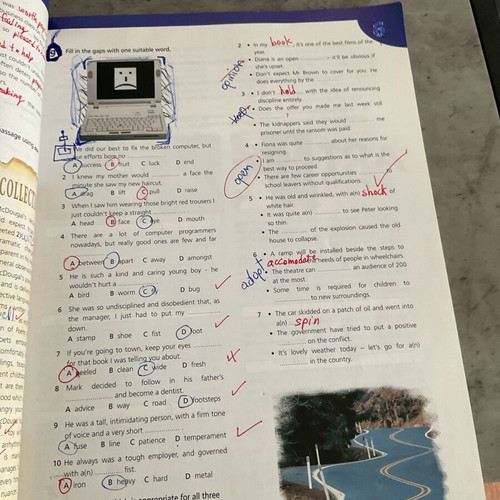 9 Fill in the gaps with one suitable word.
1 We did our best to fix the broken computer, but
our efforts bore no
A success B fruit C luck D end
2 I knew my mother would a face the
minute she saw my new haircut.
A drag B lift C pull D raise
3 When I saw him wearing those bright red trousers I
just couldn't keep a straight
A head B face C eye D mouth
4 There are a lot of computer programmers
nowadays, but really good ones are few and far
A between B apart C away D amongst
5 He is such a kind and caring young boy - he
wouldn't hurt a
A bird B worm C fly D bug
6 She was so undisciplined and disobedient that, as
the manager, I just had to put my
down.
A stamp B shoe C fist D foot
7 If you're going to town, keep your eyes
for that book I was telling you about.
A peeled B clean C wide D fresh
8 Mark decided to follow in his father's
and become a dentist.
A advice B way C road D footsteps
9 He was a tall, intimidating person, with a firm tone
of voice and a very short
A fuse B line C patience D temperament
10 He always was a tough employer, and governed
with a(n) fist.
A iron B heavy C hard D metal
is appropriate for all three
2 • In my book, it's one of the best films of the
year.
opinion
• Diana is an open it'll be obvious if
she's upset.
• Don't expect Mr Brown to cover for you. He
does everything by the
3 • I don't hold with the idea of renouncing
discipline entirely.
• Does the offer you made me last week still
?
• The kidnappers said they would me
prisoner until the ransom was paid.
4 • Fiona was quite about her reasons for
resigning.
open
• I am to suggestions as to what is the
best way to proceed.
• There are few career opportunities to
school leavers without qualifications.
5 • He was old and wrinkled, with a(n) shock of
white hair.
• It was quite a(n) to see Peter looking
so thin.
• The of the explosion caused the old
house to collapse.
6 • A ramp will be installed beside the steps to
accomodate needs of people in wheelchairs.
adopt
• The theatre can an audience of 200
at the most.
• Some time is required for children to
to new surroundings.
7 • The car skidded on a patch of oil and went into
a(n) spin
• The government have tried to put a positive
on the conflict.
• It's lovely weather today – let's go for a(n)
in the country.
COLLECT